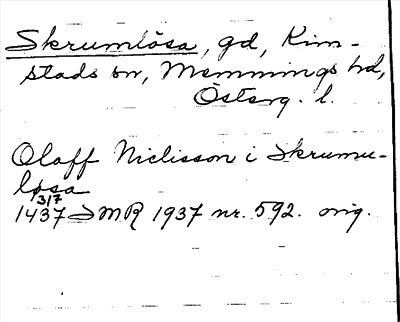 Skrumlösa, gd, Kim-
stads sn, Memmings hd,
Österg. l.
Olaff Niclisson i Skrumu-
løsa
1437 3/7 SMR 1937 nr. 592. orig.